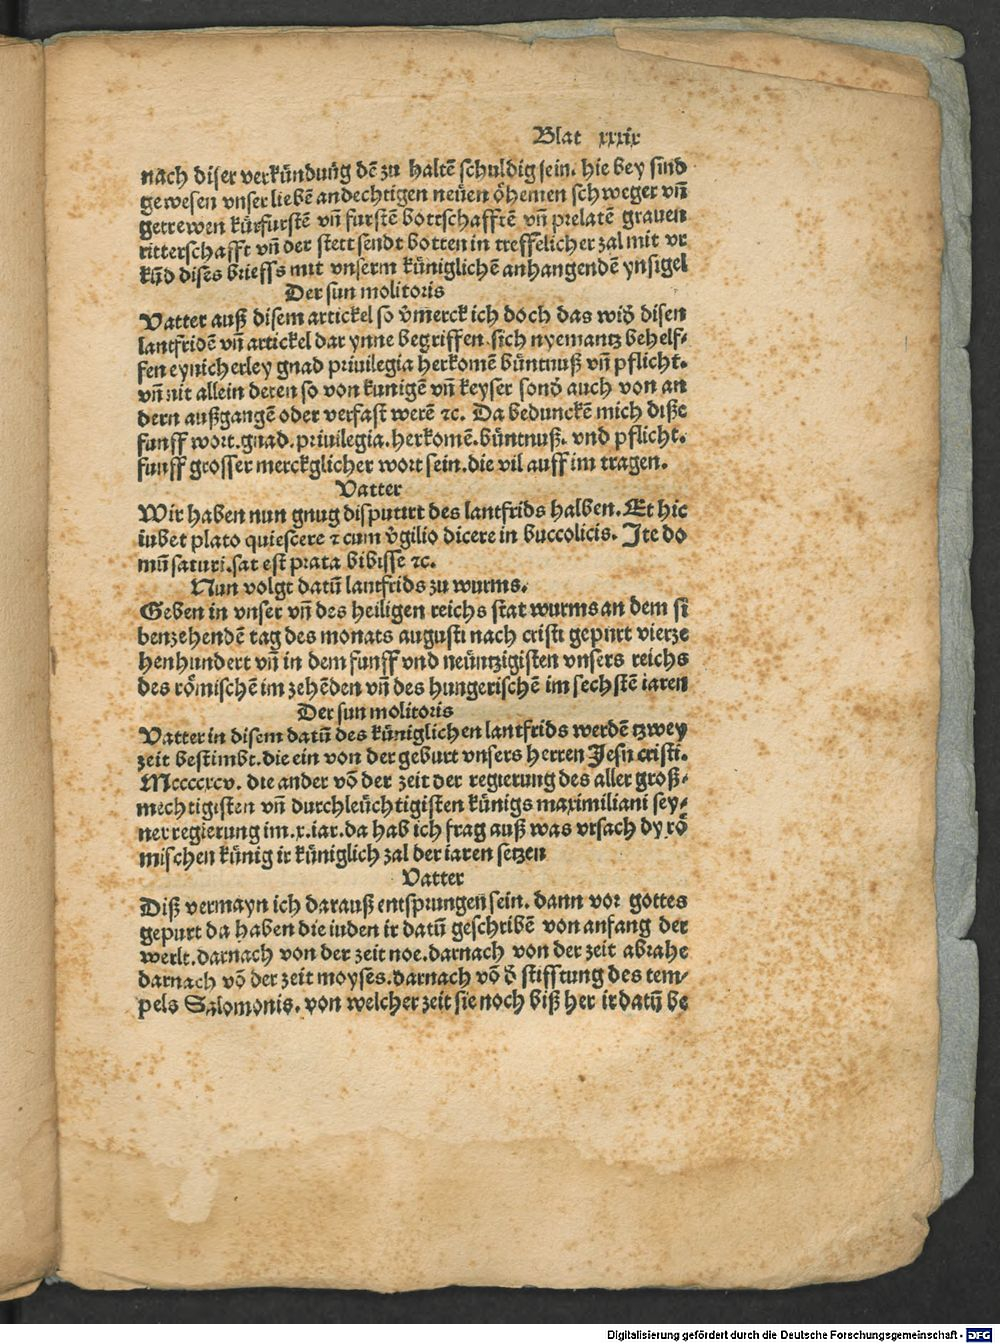 Blat xxxix
nach diser verkündūg dē zu haltē schuldig sein. hie bey sind
gewesen vnser liebē andechtigen neüen öhemen schweger vn̄
getrewen kürfurstē vn̄ furstē bottschafftē vn̄ prelatē grauen
ritterschafft vn̄ der stett sendt botten in treffelicher zal mit vr
kūd dises brieffs mit vnserm küniglichē anhangendē ynsigel
Der sun molitoris
Vatter auß disem artickel so v̄merck ich doch das wið disen
lantfridē vn̄ artickel dar ynne begriffen sich nyemantz behelf⸗
fen eynicherley gnad priuilegia herkomē büntnuß vn̄ pflicht.
vn̄ nit allein deren so von kunigē vn̄ keyser sonð auch von an
dern außgangē oder verfast werē ⁊c. Da bedunckē mich diße
funff wort. gnad. priuilegia. herkomē. büntnuß. vnd pflicht.
funff grosser merckglicher wort sein. die vil auff im tragen.
Vatter
Wir haben nun gnug disputirt des lantfrids halben. Et hic
iubet plato quiescere ⁊ cum v̄gilio dicere in buccolicis. Ite do
mū saturi. sat est prata bibisse ⁊c.
Nun volgt datū lantfrids zu wurms.
Geben in vnser vn̄ des heiligen reichs stat wurms an dem si
benzehendē tag des monats augusti nach cristi gepurt vierze
henhundert vn̄ in dem funff vnd neüntzigisten vnsers reichs
des römischē im zehēden vn̄ des hungerischē im sechstē iaren
Der sun molitoris
Vatter in disem datū des küniglichen lantfrids werdē tzwey
zeit bestimbt. die ein von der geburt vnsers herren Jesu cristi.
Mccccxcv. die ander vō der zeit der regierung des aller groß⸗
mechtigisten vn̄ durchleüchtigisten künigs maximiliani sey⸗
ner regierung im .x. iar. da hab ich frag auß was vrsach dy rö
mischen künig ir küniglich zal der iaren setzen
Vatter
Diß vermayn ich darauß entsprungen sein. dann vor gottes
gepurt da haben die iuden ir datū geschribē von anfang der
werlt. darnach von der zeit noe. darnach von der zeit abrahe
darnach vō der zeit moyses. darnach vō ð stifftung des tem⸗
pels Salomonis. von welcher zeit sie noch biß her ir datū be
Digitalisierung gefördert durch die Deutsche Forschungsgemeinschaft - DFG